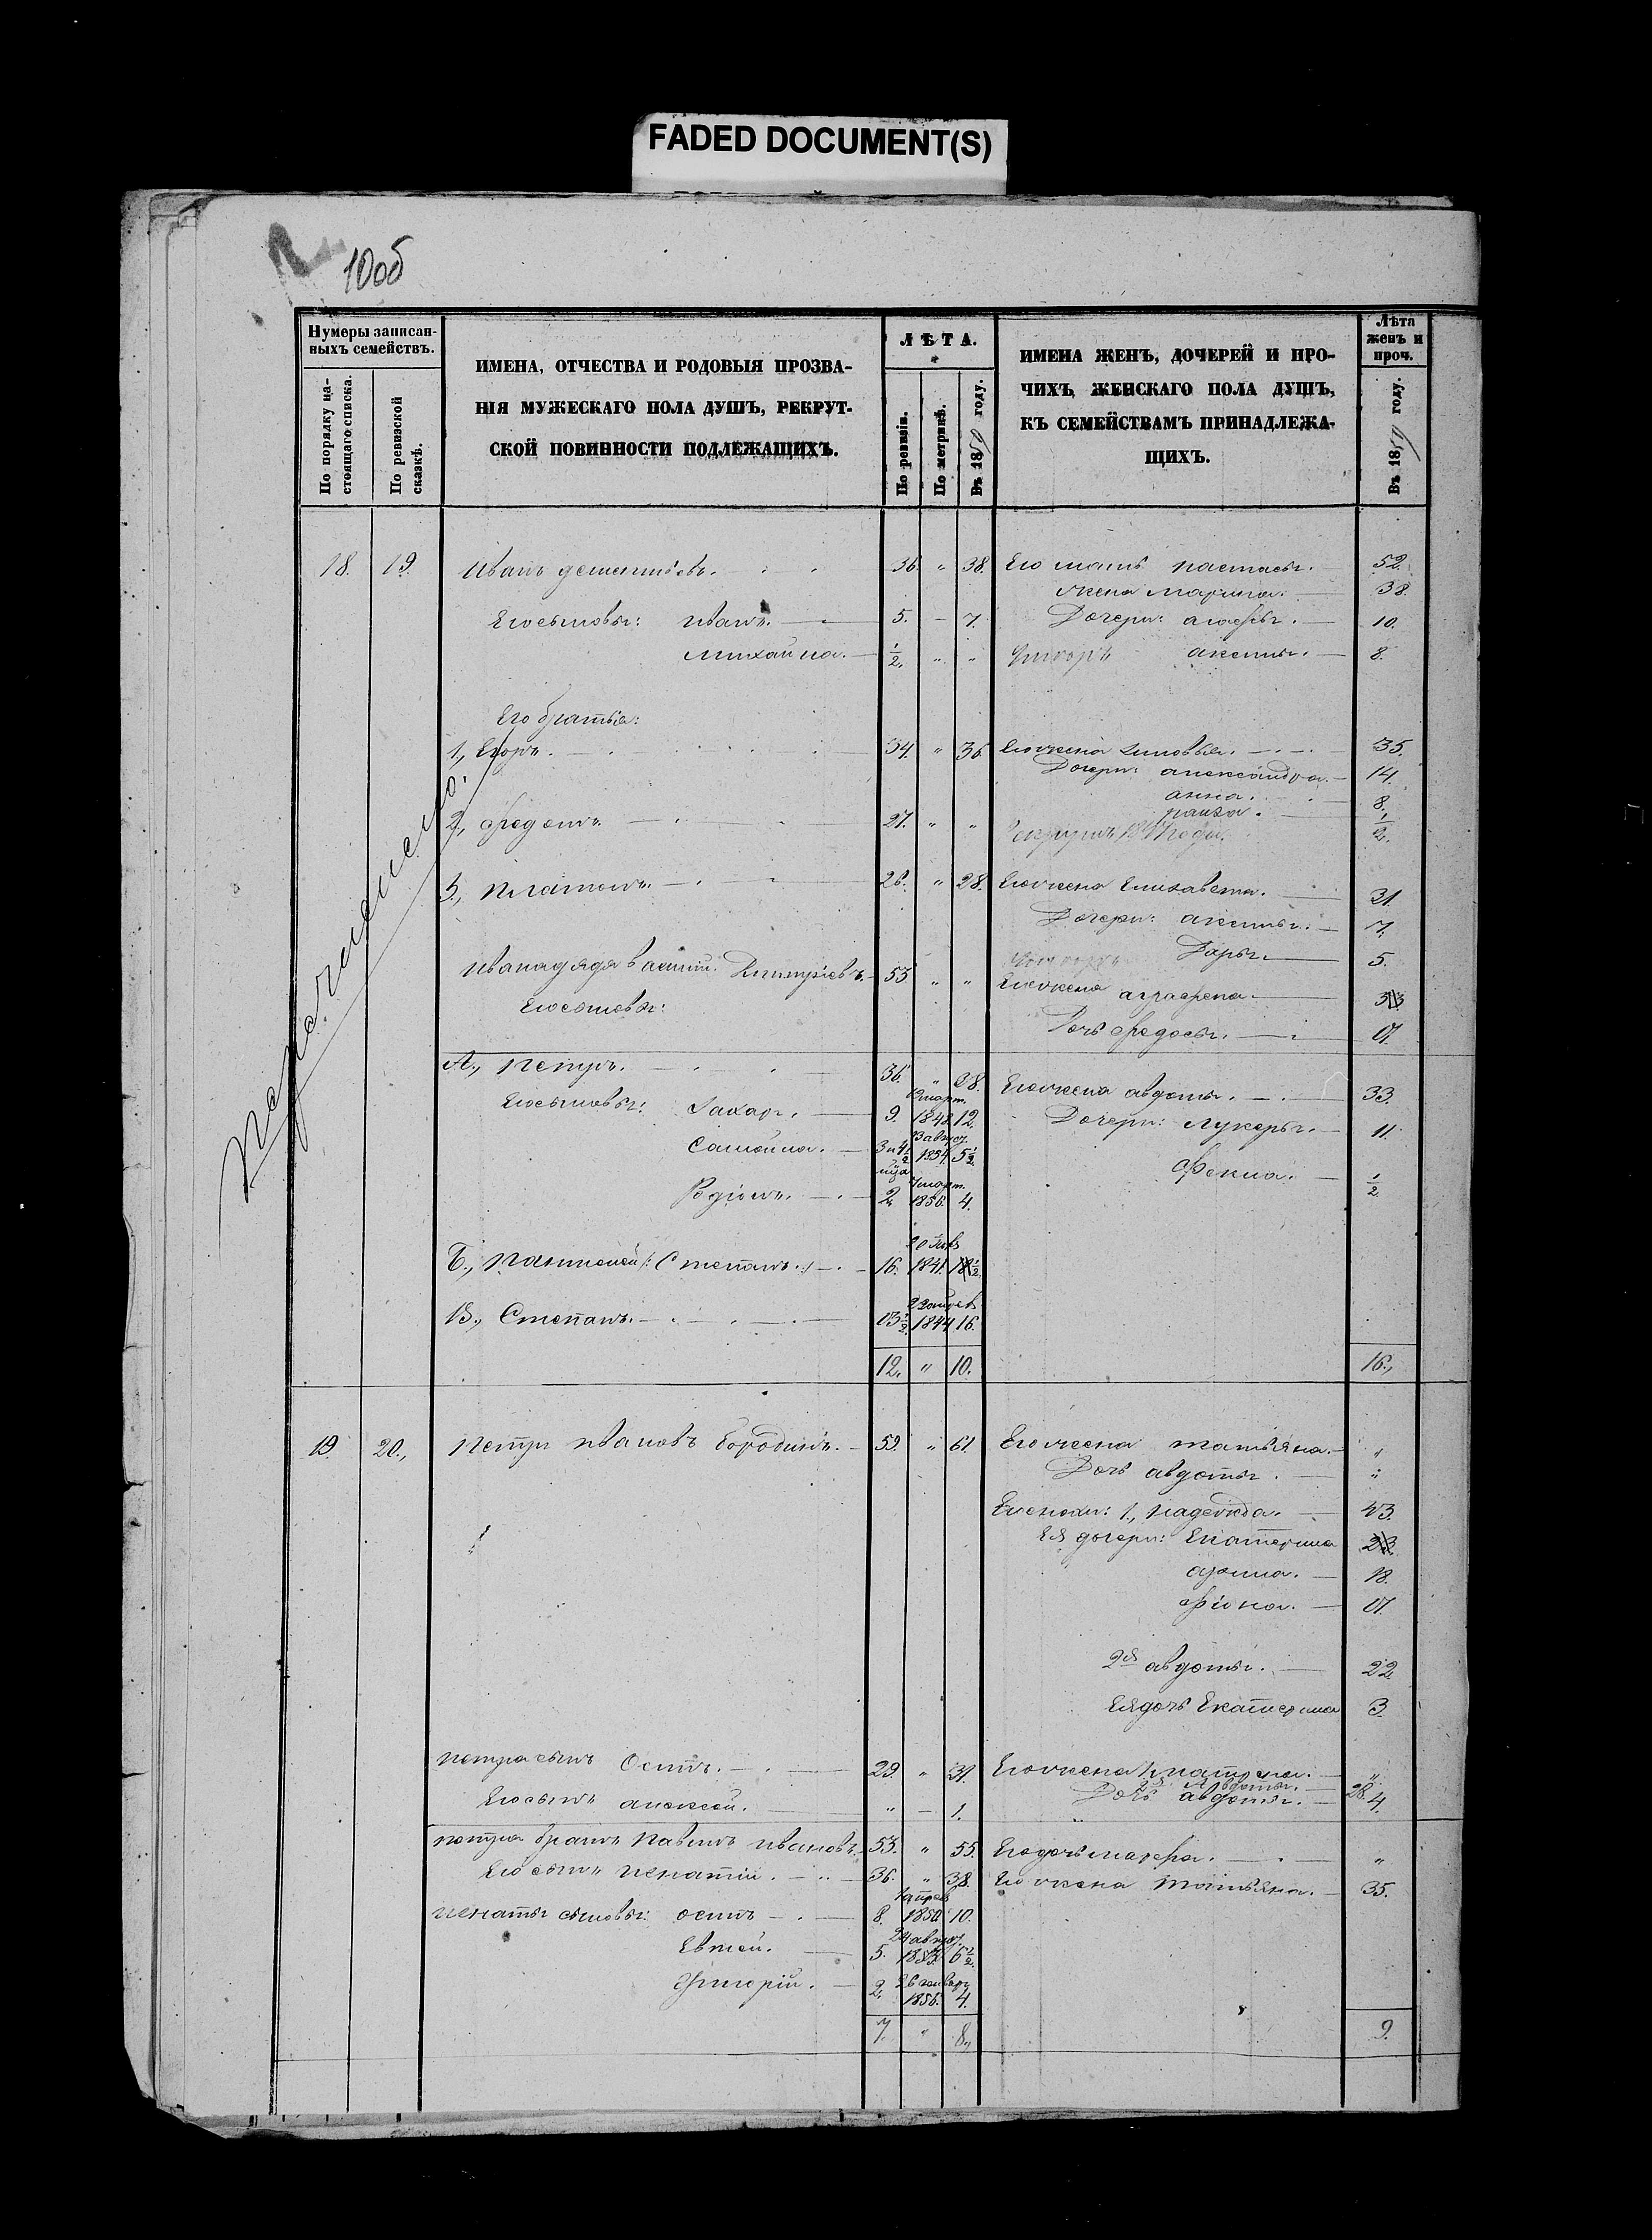 FADED DOCUMENT(S)
10об
Нумеры записан-
ныхъ семействъ.
По порядку на-
стоящаго списка.
По ревизской
сказкѣ.
ИМЕНА, ОТЧЕСТВА И РОДОВЫЯ ПРОЗВА-
НІЯ МУЖЕСКАГО ПОЛА ДУШЪ, РЕКРУТ-
СКОЙ ПОВИННОСТИ ПОДЛЕЖАЩИХЪ.
ЛѢТА.
По ревизіи.
По метрикѣ.
Въ 1859 году.
ИМЕНА ЖЕНЪ, ДОЧЕРЕЙ И ПРО-
ЧИХЪ ЖЕНСКАГО ПОЛА ДУШЪ,
КЪ СЕМЕЙСТВАМЪ ПРИНАДЛЕЖА-
ЩИХЪ.
Лѣта
женъ и
проч.
Въ 1859 году.
18. 19. Иванъ Дементьевъ. 36. " 38. Его мать Настасья. 52.
жена Марина. 38.
Его сыновья: Иванъ. 5. — 7. Дочери: Агафья. 10.
Михайла. ½. " " Аксинья. 8.
Его братья:
1, Егоръ. 34. " 36. Его жена Зиновья. 35.
Дочери: Александра. 14.
Анна. 8.
½.
2, Федотъ. 27. " " Рекрутъ года.
3, Платонъ. 26. " 28. Его жена Елизавета. 31.
Дочери: Аксинья. 7.
Дарья. 5.
Ивана дядя Василій Дмитріевъ. 53 " " Его жена Аграфена.
Его сыновья: Дочь Федосья. 17.
А., Петръ. 36. " 38. Его жена Авдотья. 33.
Его сыновья: Захаръ. 9. март. 1848. 12. Дочери: Лукерья. 11.
Самойла. 3 и 4½ м-ца 23 август. 1854. 5½. Фекла. ½
Родіонъ. 2. март. 1856. 4.
Б., Пантелей (Степанъ) 16. 1841. 18½
В., Степанъ. 13½. 1844 16.
12. " 10. 16.
19. 20. Петръ Ивановъ Бородинъ. 59. " 61 Его жена Татьяна. "
Дочь Авдотья. "
Его снохи: 1, Надежда. 43.
Ея дочери: Екатерина 23
Арина. 18.
Фіона. 17.
2я Авдотья. 22
Ея дочь Екатерина 3.
Петра сынъ Осипъ. 29. " 31. Его жена 1, Матрена. "
2я Авдотья. 28.
Его сынъ Алексей. " — 1. Дочь Авдотья. 4.
Петра братъ Павелъ Ивановъ. 53. " 55. Его дочь Марфа. "
Его сынъ Игнатій. 36. " 38. Его жена Татьяна. 35.
Игнатья сыновья: Осипъ 8. 1850 10.
Евсей. 5. 24 август. 6½.
Григорій. 2. 26 январ. 1856. 4.
7. " 8. 9.